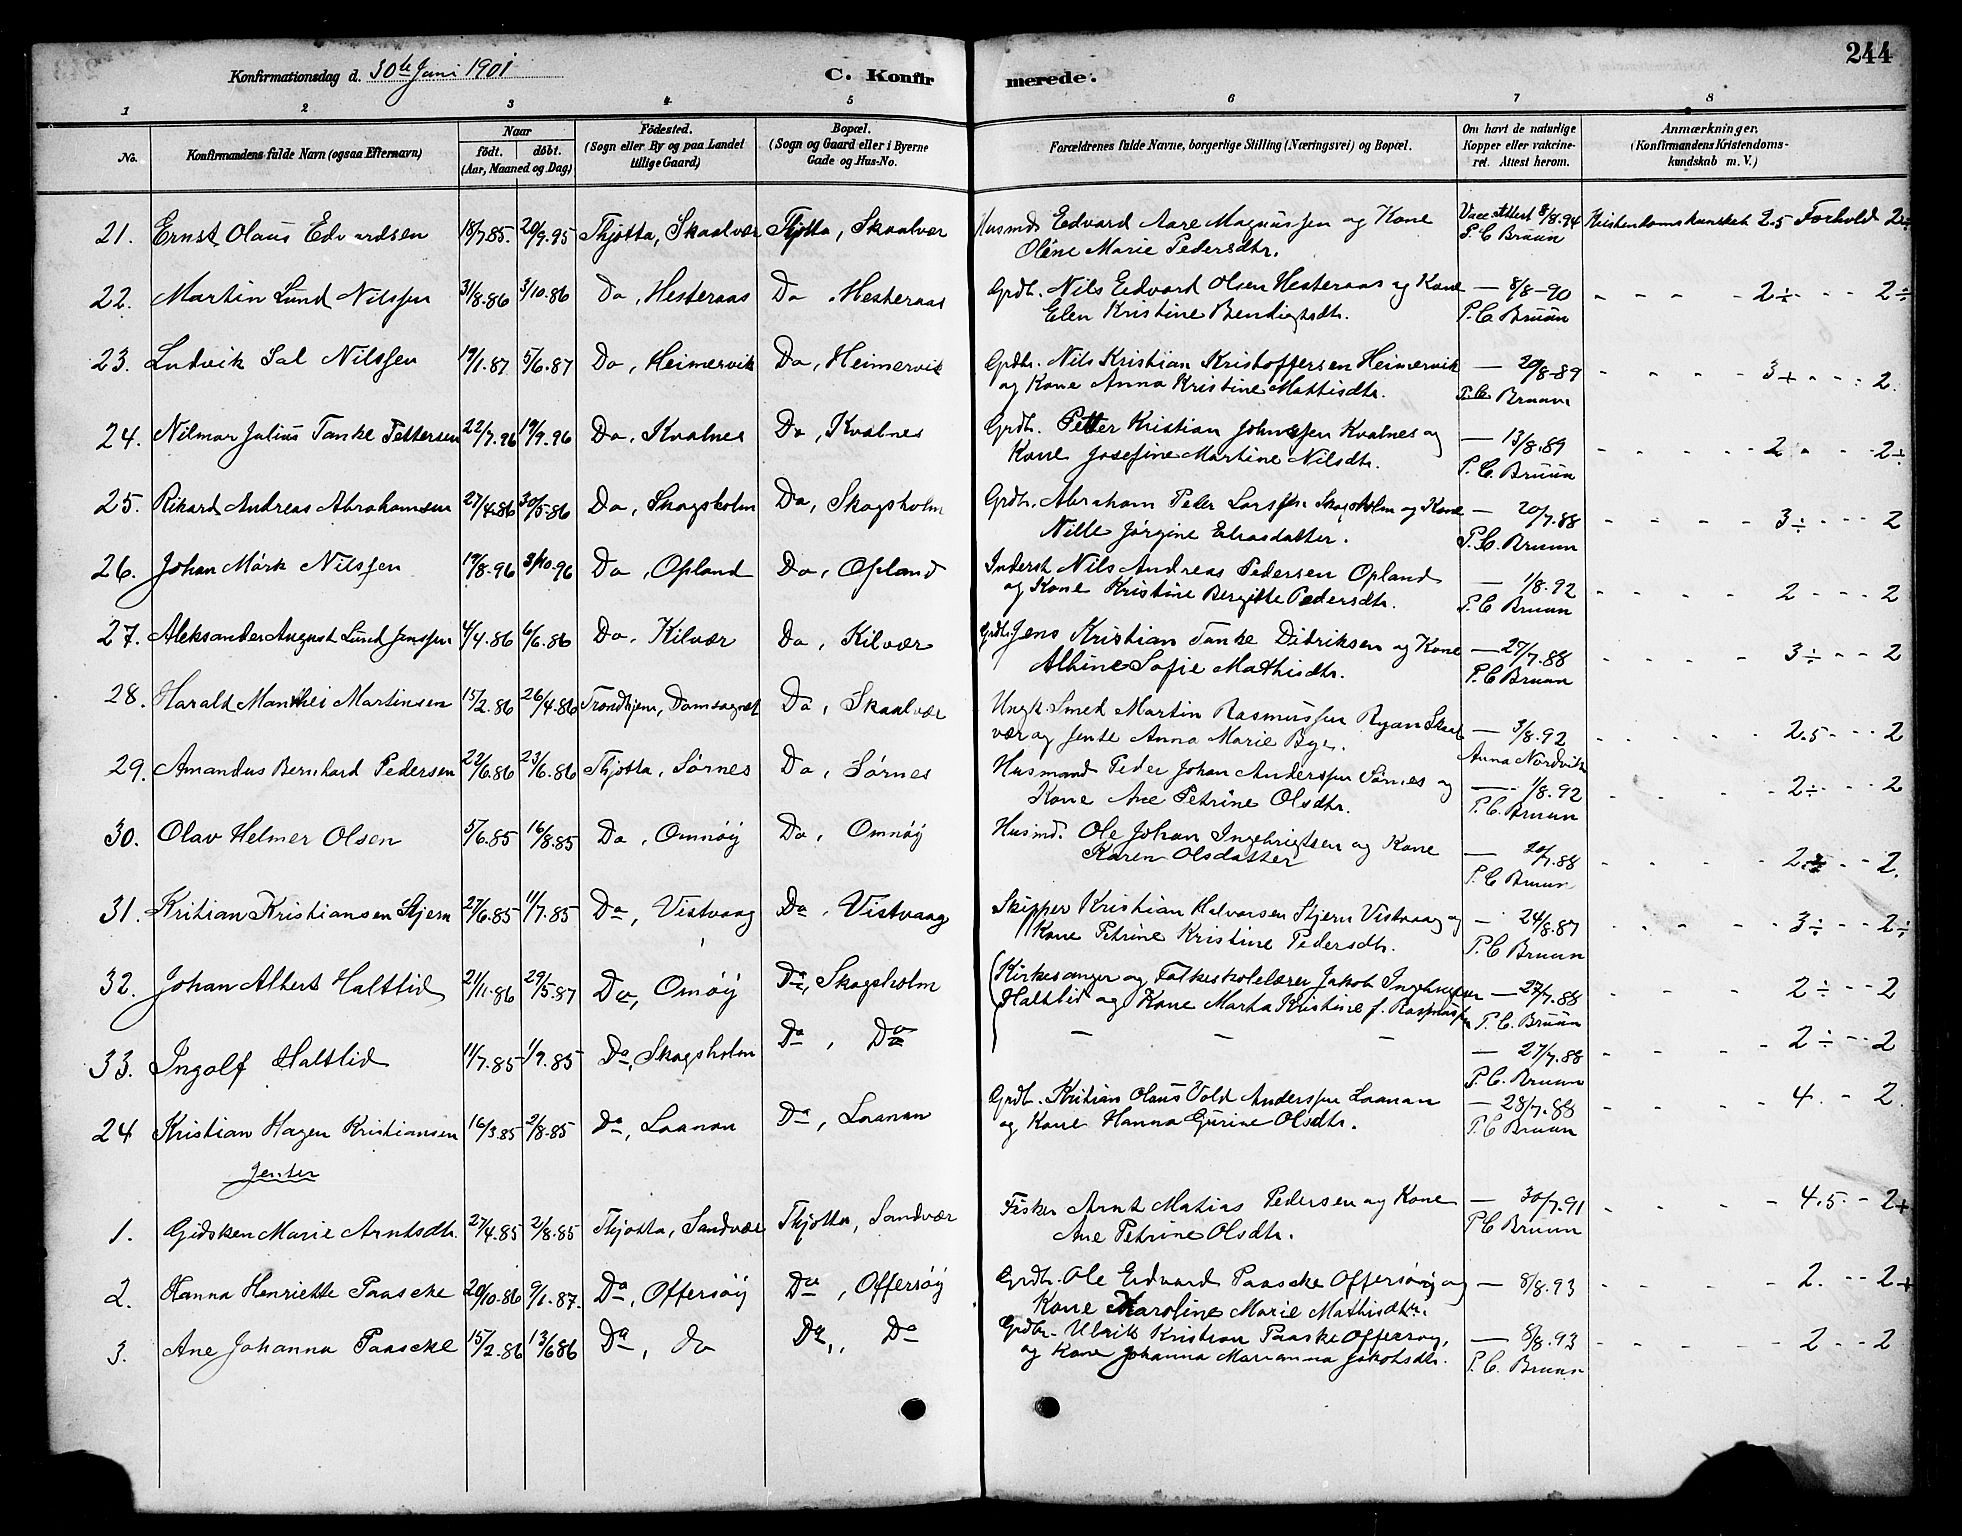 244
Konfirmationsdag d. 30te Juni 1901
C. Konfirmerede.
1 2 3 4 5 6 7 8
No. Konfirmandens fulde Navn (ogsaa Efternavn) Naar født. døbt. (Aar, Maaned og Dag) Fødested. (Sogn eller By og paa Landet tillige Gaard) Bopæl. (Sogn og Gaard eller i Byerne Gade og Hus-No. Forældrenes fulde Navne, borgerlige Stilling (Næringsvei) og Bopæl. Om havt de naturlige Kopper eller vakcineret. Attest herom. Anmærkninger. (Konfirmandens Kristendomskundskab m. V.)
21. Ernst Olaus Edvardsen 18/7.85. 20/9.95 Thjøtta, Skaalvær Thjøtta, Skaalvær Husmd. Edvard Aare Magnussen og Kone Vacc. Attest 8/8.94 Kristendomskundskab 2.5 Forhold 2÷
Oline Marie Pedersdtr. P. C. Bruun
22. Martin Lund Nilssen 31/8.86 3/10.86 Do, Hesteraas Do, Hesteraas Grdbr. Nils Edvard Olsen Hesteraas og Kone — 8/8-90 - - - - 2÷ - - 2÷
Elen Kristine Bendigtsdtr. P. C. Bruun
23. Ludvik Sal Nilssen 19/1.87 5/6.87 Do, Heimervik Do, Heimervik Grdbr. Nils Kristian Kristoffersen Heimervik — 20/8-89 - - - - 3+ - - - 2.
og Kone Anna Kristine Mathisdtr. P. C. Bruun
24. Nilmar Julius Tanke Pettersen 22/7.96 19/9.96 Do, Kvalnes Do, Kvalnes Grdb. Petter Kristian Johnsen Kvalnes og — 13/8.89 - - - - 2 - - - 2÷
Kone Josefine Martine Nilsdtr. P. C. Bruun
25. Rikard Andreas Abrahamsen 27/4.86 30/5.86 Do, Skogsholm Do, Skogsholm Grdbr. Abraham Peder Larssen Skogsholm og Kone — 20/7.88 - - - - 3÷ - - - 2
Nille Jørgine Eliasdatter. P. C. Bruun
26. Johan Mørk Nilssen 19/8.96 3/10.96 Do, Opland Do, Opland Inderst Nils Andreas Pedersen Opland — 1/8.92 - - - - 2 - - - 2
og Kone Kristine Bergitte Pedersdtr. P. C Bruun
27. Aleksander August Lund Jenssen 4/4.86 6/6.86 Do, Kilvær Do, Kilvær Grdbr. Jens Kristian Tanke Didriksen og Kone — 27/7.88 - - - - 3÷ - - 2
Albine Sofie Mathisdtr. P. C Bruun
28. Harald Manthei Martinsen 15/2.86 26/4.86 Trondhjem, Domsognet Do, Skaalvær Ungk. Smed Martin Rasmussen Ryan Skaal — 3/8.92 - - - - 2.5 - - - 2
vær og Jente Anna Marie Bye. Anna Nordvik
29. Amandus Bernhard Pedersen 22/6.86 23/6.86 Thjøtta, Sørnes Do, Sørnes Husmand Peder Johan Anderssen Sørnes og — 1/8.92 - - - - 2÷ - - - 2
Kone Ane Petrine Olsdtr. P. C. Bruun
30. Olav Helmer Olsen 5/6.85 16/8.85 Do, Omnøy Do, Omnøy Husmd. Ole Johan Ingebrigtsen og Kone — 20/7.88 - - - - 2.5 - - 2.
Karen Olsdatter P. C Bruun
31. Kritian Kristiansen Stjern 27/6.85 11/7.85 Do, Vistvaag Do, Vistvaag Skipper Kristian Halvorsen Stjern Vistvaag og — 24/8.87 - - - - 3÷ - - 2÷
Kone Petrine Kristine Pedersdtr. P. C Bruun
32. Johan Albert Haltlid 21/11.86 29/5.87 Do, Omøy Do, Skogsholm Kirkesanger og Folkeskolelærer Jakob Ingebrigtsen — 27/7.88 - - - - 2÷ - - 2
Haltlid og Kone Marta Kristine f. Rasmussen P. C. Bruun
33. Ingolf Haltlid 11/7.85 1/9.85 Do, Skogsholm Do, Do — — — — 27/7.88 - - - - 2÷ - - 2
P. C. Bruun
24 Kristian Hagen Kristiansen 16/3.85 2/8.85 Do, Laanan Do, Laanan Grdb. Kristian Olaus Vold Anderssen Laanan — 28/7.88 - - - - 4. - 2.
og Kone Hanna Gurine Olsdtr. P. C Bruun
Jenter
1. Gidsken Marie Arntsdtr. 27/4.85 2/8.85 Thjøtta, Sandvær Thjøtta, Sandvær Fisker Arnt Matias Pedersen og Kone — 30/7.91 - - - - 4.5. - 2+
Ane Petrine Olsdtr. P. C Bruun
2. Hanna Henriette Paascke 20/10.86 9/1.87. Do, Offersøy Do, Offersøy Grdbr. Ole Edvard Paascke Offersøy og — 8/8.93 - - - - 2. - - 2+
Kone Karoline Marie Mathisdtr.
3. Ane Johanna Paascke 15/2.86 13/6 86 Do, do Do, Do Grdbr. Ulrik Kristian Paaske Offersøy, — 8/8.93 - - - - 2 - - 2
og Kone Johanna Marianna Jakobsdtr. P. C. Bruun